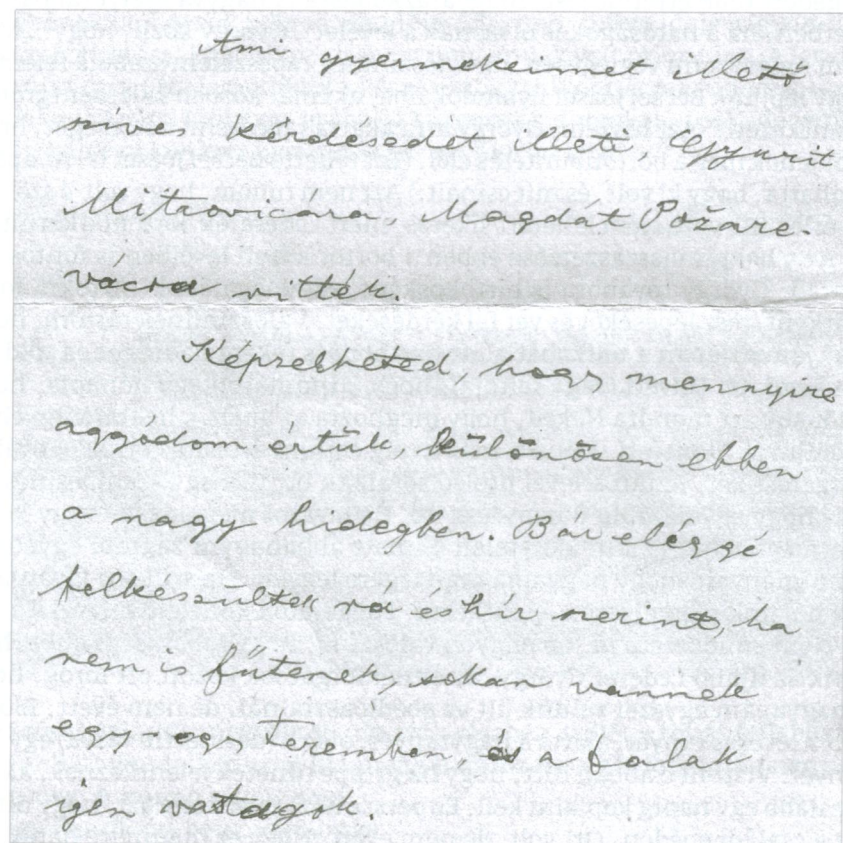 Ami gyermekeimet illető
szíves kérdésedet illeti Gyurit
Mitrovicára, Magdát Požare-
vácra vitték.
Képzelheted, hogy mennyire
aggódom értük, különösen ebben
a nagy hidegben. Bár eléggé
felkészültek rá és hír szerint, ha
nem is fűtenek, sokan vannak
egy-egy teremben, és a falak
igen vastagok.